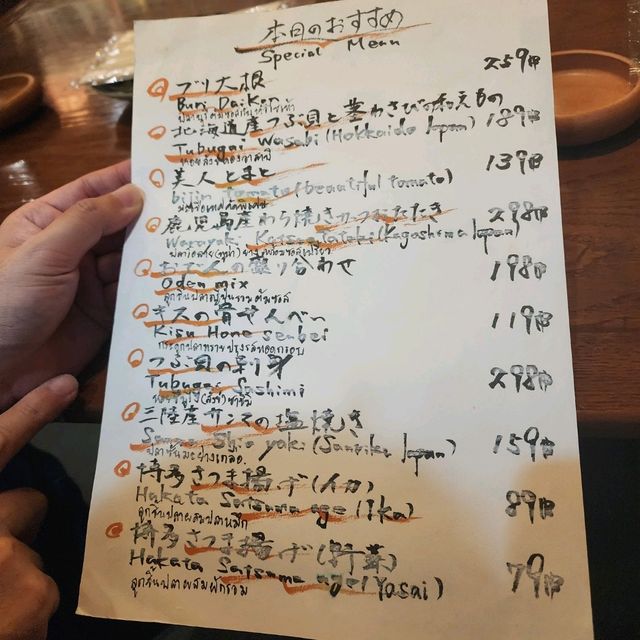 本日のおすすめ
Special Menu
ブリ大根 259฿
Buri Daikon
北海道産つぶ貝と茎わさびの和えもの 189฿
Tubugai Wasabi (Hokkaido Japan)
美人とまと 139฿
bijin tomato (beautiful tomato)
鹿児島産わら焼きかつおたたき 298฿
Warayaki Katsuotataki (Kagoshima Japan)
おでんの盛り合わせ 198฿
Oden mix
ลูกชิ้นปลาญี่ปุ่นรวมต้มซอส
キスの骨せんべい 119฿
Kisu Hone senbei
つぶ貝の刺身 298฿
Tubugai Sashimi
三陸産サンマの塩焼き 159฿
Sanma Shio yaki (Sanriku Japan)
ปลาซันมะย่างเกลือ
博多さつま揚げ (イカ) 89฿
Hakata Satsuma age (Ika)
ลูกชิ้นปลาผสมปลาหมึก
博多さつま揚げ (野菜) 79฿
Hakata Satsuma age (Yasai)
ลูกชิ้นปลาผสมผักรวม